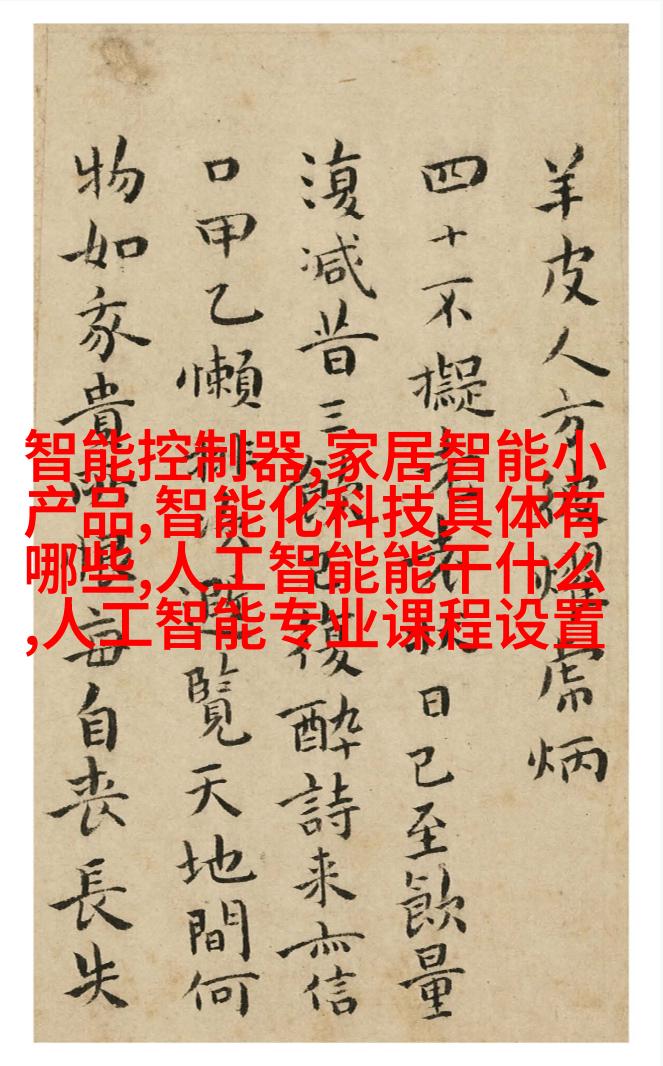 羊皮人方炳
四十不擬日已至飲量
復减昔三復醉詩来亦信
口甲乙懶覽天地間何
物如豕貴每自丧長失
智能控制器,家居智能小
产品,智能化科技具体有
哪些,人工智能能干什么
,人工智能专业课程设置